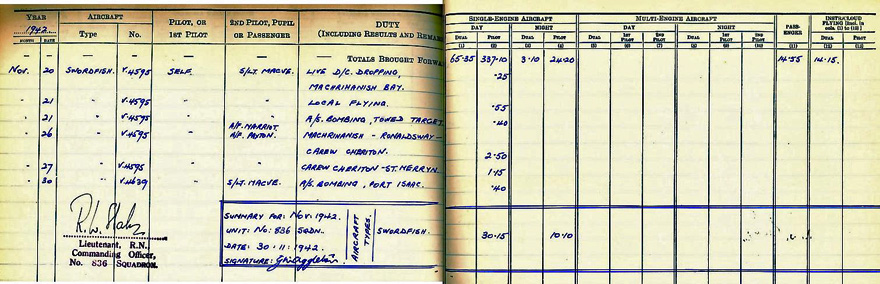 YEAR AIRCRAFT PILOT, OR 2ND PILOT, PUPIL DUTY SINGLE-ENGINE AIRCRAFT MULTI-ENGINE AIRCRAFT PASS- INSTR/CLOUD
1942. 1ST PILOT OR PASSENGER (INCLUDING RESULTS AND REMARKS DAY NIGHT DAY NIGHT ENGER FLYING [Incl. in cols. (1) to (10)]
MONTH DATE Type No. DUAL PILOT DUAL PILOT DUAL 1ST PILOT 2ND PILOT DUAL 1ST PILOT 2ND PILOT DUAL PILOT
(1) (2) (3) (4) (5) (6) (7) (8) (9) (10) (11) (12) (13)
— — — — — — — TOTALS BROUGHT FORWA 65·35 337·10 3·10 24·20 14·55 14·15.
NOV. 20 SWORDFISH. V.4595 SELF. S/LT. MACVE. LIVE D/C. DROPPING, ·25
MACHRIHANISH BAY.
" 21 " V.4595 " " LOCAL FLYING. ·55
" 21 " V.4595 " " A/S. BOMBING, TOWED TARGET ·40
A/F. MARRIOT.
" 26 " V.4595 " A/F. PAYTON. MACHRIHANISH - RONALDSWAY -
CAREW CHERITON. 2·50
" 27 " V.4595 " " CAREW CHERITON - ST. MERRYN 1·15
" 30 " V.4639 " S/LT. MACVE. A/S. BOMBING, PORT ISAAC. ·40
SUMMARY FOR: NOV. 1942. AIRCRAFT TYPES. SWORDFISH. 30·15 10·10
UNIT: No. 836 SQDN.
DATE: 30·11·1942.
SIGNATURE:
Lieutenant, R.N.,
Commanding Officer,
No. 836 SQUADRON.